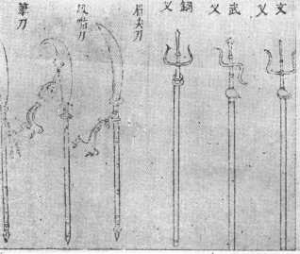 文叉
武叉
鋼叉
眉尖刀
鳳嘴刀
筆刀